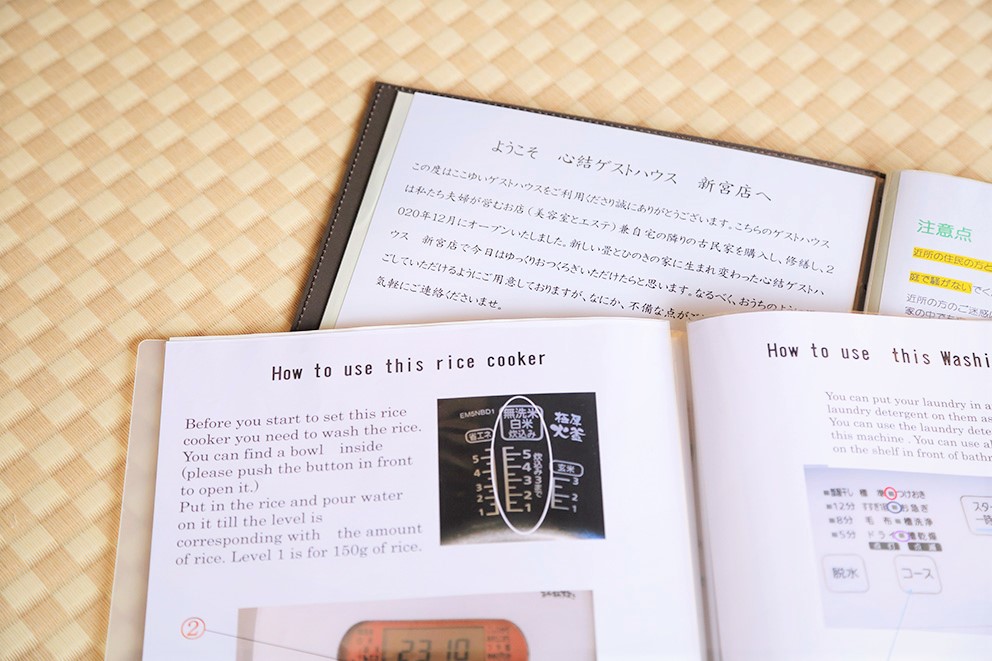 ようこそ 心結ゲストハウス 新宮店へ
この度はここゆいゲストハウスをご利用くださり誠にありがとうございます。こちらのゲストハウス
は私たち夫婦が営むお店(美容室とエステ)兼自宅の隣りの古民家を購入し、修繕し、2
020年12月にオープンいたしました。新しい畳とひのきの家に生まれ変わった心結ゲストハ
ウス 新宮店で今日はゆっくりおつくろぎいただけたらと思います。なるべく、おうちのよ
ごしていただけるようにご用意しておりますが、なにか、不備な点がご
気軽にご連絡くださいませ。
注意点
近所の住民の方と
庭で騒がないでく
近所の方のご迷惑
How to use this rice cooker
Before you start to set this rice
cooker you need to wash the rice.
You can find a bowl inside
(please push the button in front
to open it.)
Put in the rice and pour water
on it till the level is
corresponding with the amount
of rice. Level 1 is for 150g of rice.
EM5NBD1
無洗米
白米
炊込み
極厚
火釜
省エネ
玄米
炊込み3まで
5
4
3
2
1
5
4
3
2
1
3
2
1
②
23 10
How to use this Washi
You can put your laundry in a
laundry detergent on them as
You can use the laundry dete
this machine . You can use al
on the shelf in front of bathr
標 準 つけおき
12分 すすぎ1回 お急ぎ
8分 毛 布 槽洗浄
5分 ドライ 槽乾燥
点灯 点滅
スター
一時
脱水
コース